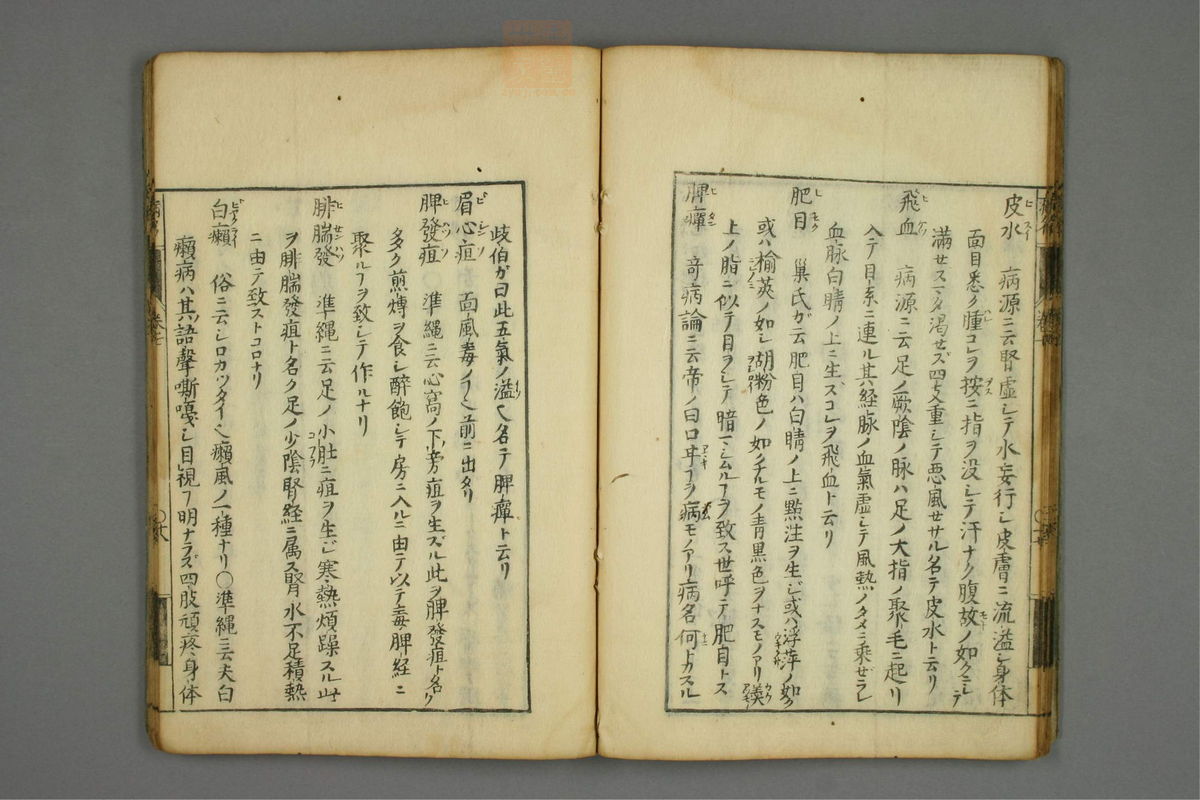 皮水 病源ニ云腎虚シテ水妄行シ皮膚ニ流溢シ身体
面目悉ク腫コレヲ按ニ指ヲ没シテ汗ナク腹故ノ如クニシテ
満サスマタ渇セズ四支重シテ悪風セサル名テ皮水ト云リ
飛血 病源ニ云足ノ厥陰ノ脉ハ足ノ大指ノ聚毛ニ起リ
入テ目系ニ連ル其経脉ノ血氣虚シテ風熱ノタメニ乗ゼラレ
血脉白睛ノ上ニ生ズコレヲ飛血ト云リ
肥目 巣氏ガ云肥目ハ白睛ノ上ニ點注ヲ生ジ或ハ浮萍ノ如ク
或ハ楡莢ノ如シ胡粉色ノ如クナルモノ青黒色ヲナスモノアリ羮
上ノ脂ニ似テ目ヲシテ暗マシムルヿヲ致ス世呼テ肥目トス
脾癉 竒病論ニ云帝ノ曰口甘ヿヲ病モノアリ病名何トカスル
歧伯ガ曰此五氣ノ溢也名テ脾癉ト云リ
眉心疽 面風毒ノヿ也前ニ出タリ
脾發疽 準縄ニ云心窩ノ下旁疽ヲ生ズル此ヲ脾發疽ト名ク
多ク煎煿ヲ食シ醉飽シテ房ニ入ルニ由テ以テ毒脾経ニ
聚ルヿヲ致シテ作ルナリ
腓腨發 準縄ニ云足ノ小肚ニ疽ヲ生ジ寒熱煩躁スル此
ヲ腓腨發疽ト名ク足ノ少陰腎経ニ属ス腎水不足積熱
ニ由テ致ストコロナリ
白癩 俗ニ云シロカツタイ也癩風ノ一種ナリ○準縄ニ云夫白
癩病ハ其語聲嘶嗄シ目視ヿ明ナラズ四肢頑疼身体